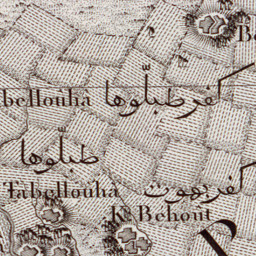 bellouha كفر طبلّوها
طبلّوها
Tabellouha كفر بهوت
K. Behout